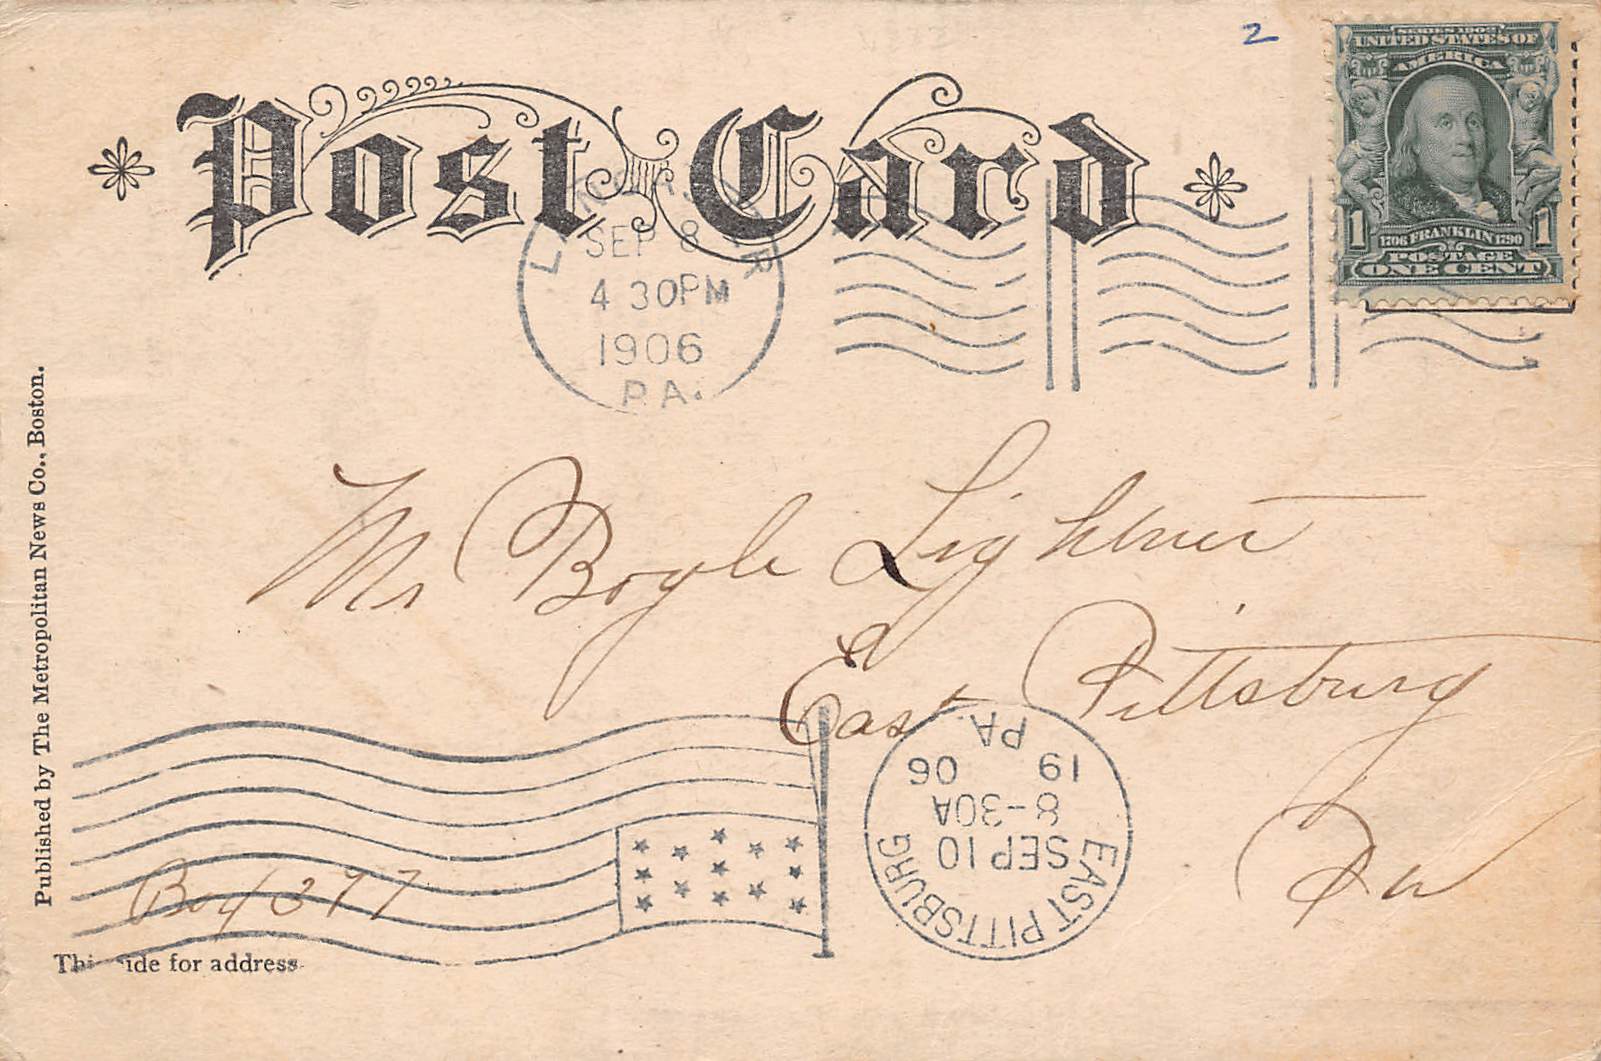 2
SERIES 1902
UNITED STATES OF
AMERICA
1 1706 FRANKLIN 1790 1
POSTAGE
ONE CENT
Post Card
SEP 8
4 30PM
1906
PA.
Published by The Metropolitan News Co., Boston.
Mr Boyle Lightner
East Pittsburg
Pa
Box 377
EAST PITTSBURG
SEP 10
8-30A
19 06
PA.
This side for address